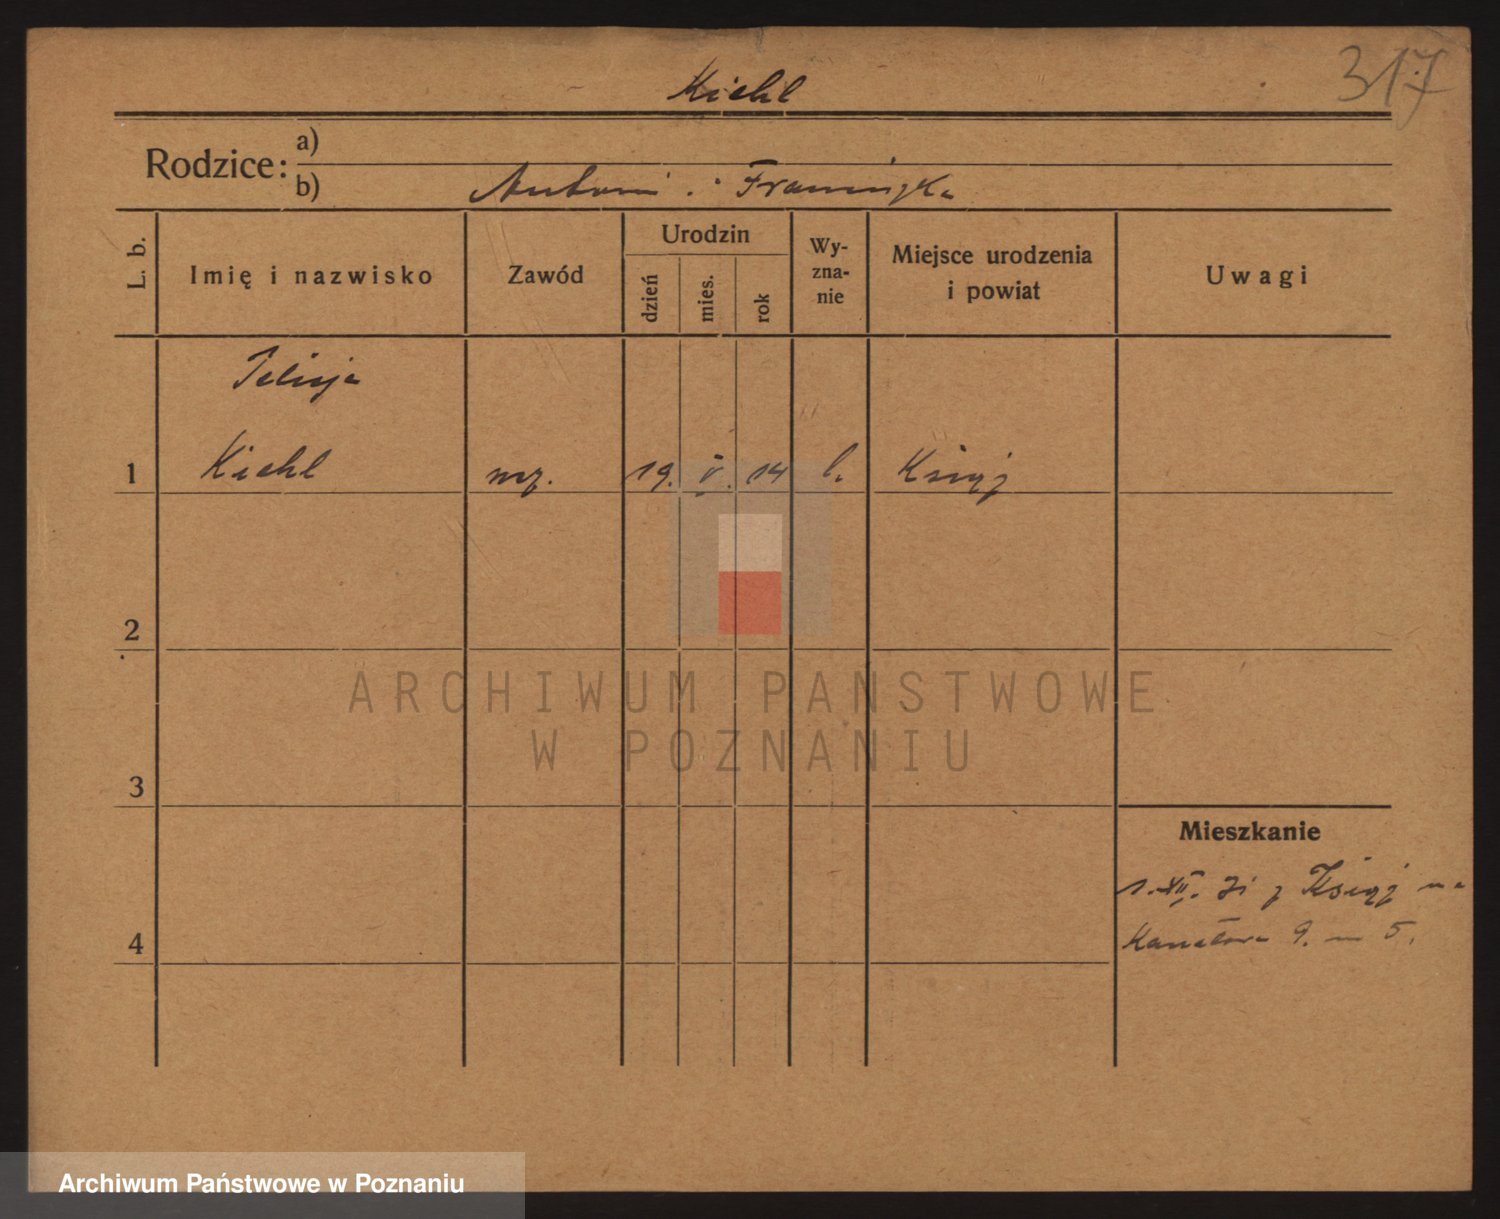 317
Kiehl
Rodzice:
a)
b) Antoni i Franciszka
L. b.
Imię i nazwisko
Zawód
Urodzin
dzień
mies.
rok
Wy-
zna-
nie
Miejsce urodzenia
i powiat
Uwagi
Felicja
1 Kiehl 19. V. 14 k. Książ
2
3
4
Mieszkanie
1. XII. 31 z Książ na
9. m 5.
ARCHIWUM PAŃSTWOWE
W POZNANIU
Archiwum Państwowe w Poznaniu